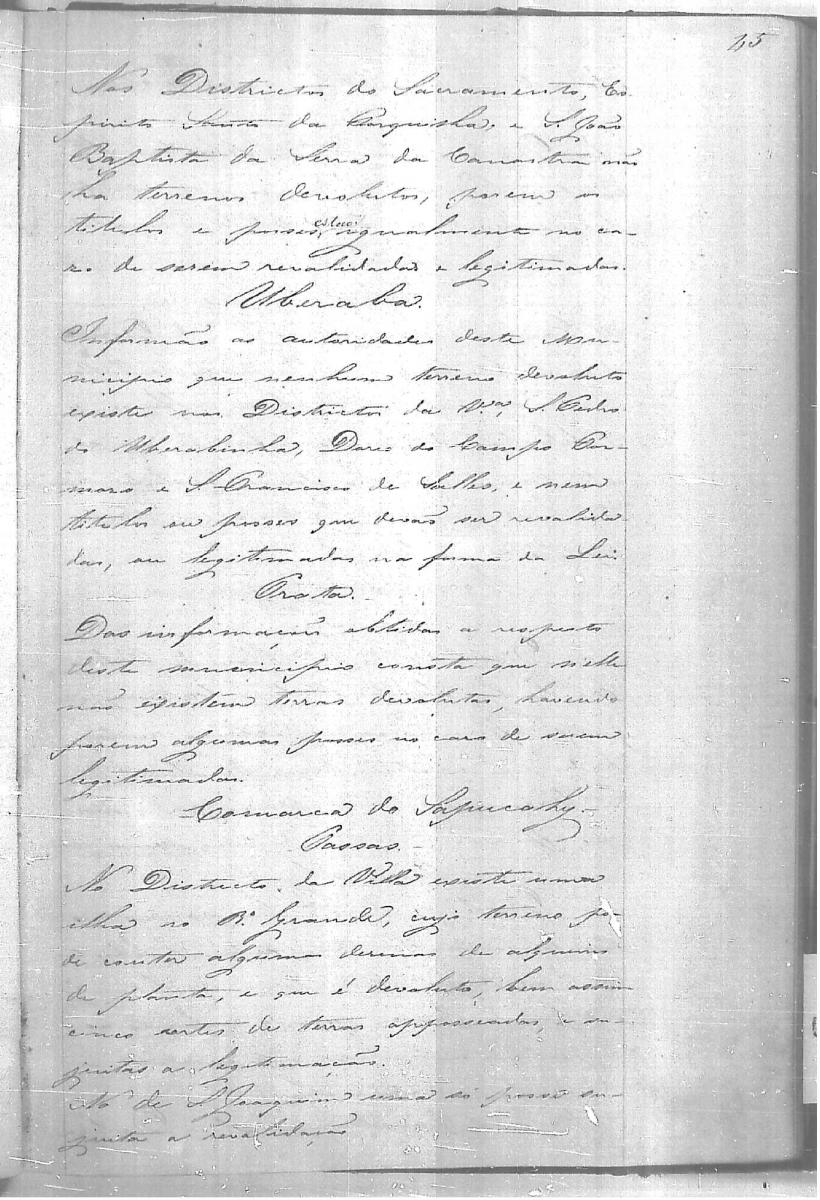 45
Nos Districtos do Sacramento, Es-
pirito Santo da Forquilha, e S. João
Baptista da Serra da Canastra não
ha terrenos devolutos, porem os
titulos e posses estão igualmente no ca-
zo de serem revalidadas e legitimadas.
Uberaba.
Informão as autoridades deste Mu-
nicipio que nenhum terreno devoluto
existe nos Districtos da V.ª, S. Pedro
do Uberabinha, Dores do Campo For-
mozo e S. Francisco de Salles, e nem
titulos ou posses que devão ser revalida-
das, ou legitimadas na forma da Lei.
Prata.
Das informações obtidas a respeito
deste municipio consta que nelle
não existem terras devolutas, havendo
porem algumas posses no caso de serem
legitimadas.
Comarca do Sapucahy.
Passos.
No Districto da Villa existe uma
ilha no R.º Grande, cujo terreno po-
de conter algumas de alqueires
de planta, e que é devoluto, bem assim
cinco sortes de terras apposseadas, e su-
jeitas a legitimação.
No de S. Joaquim uma só posse su-
jeita a revalidação